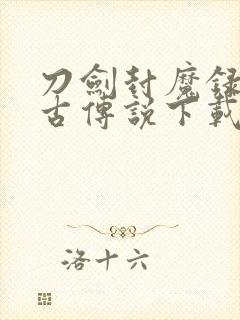 刀劍封魔錄
古傳說下載
洛十六